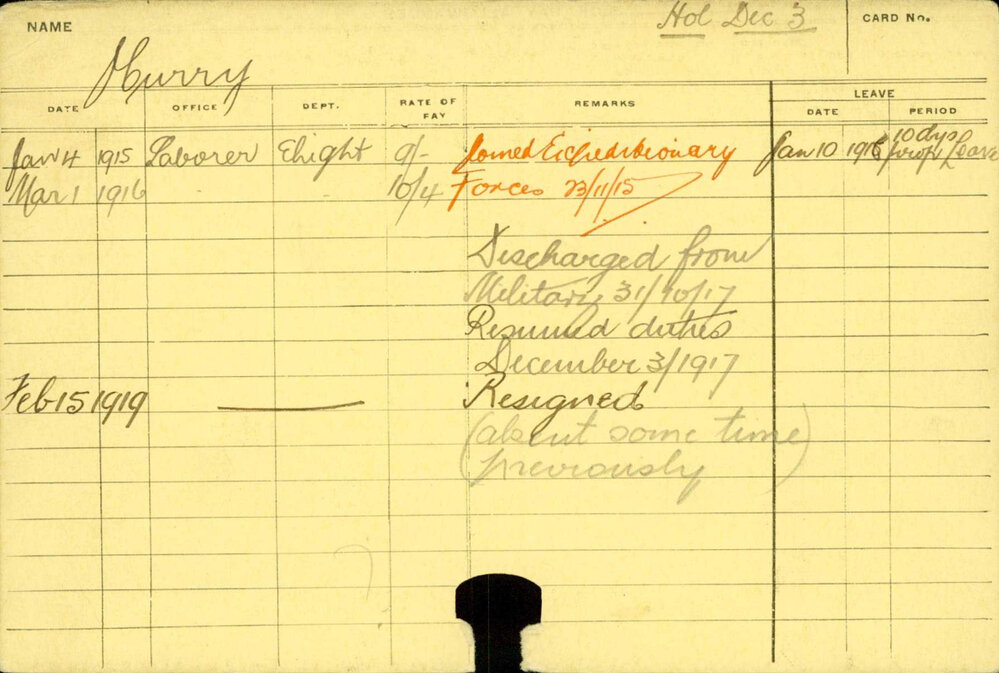 NAME
Hol Dec 3
CARD No.
Hurry
DATE OFFICE DEPT. RATE OF PAY REMARKS LEAVE DATE PERIOD
Jan 4 1915 Laborer Ehight 9/- Joined Expeditionary Jan 10 1916 10 dys
Mar 1 1916 " 10/4 Forces 23/11/15 Leave
Discharged from
Military 31/10/17
Resumed duties
December 3/1917
Feb 15 1919 — Resigned
(absent some time
previously)